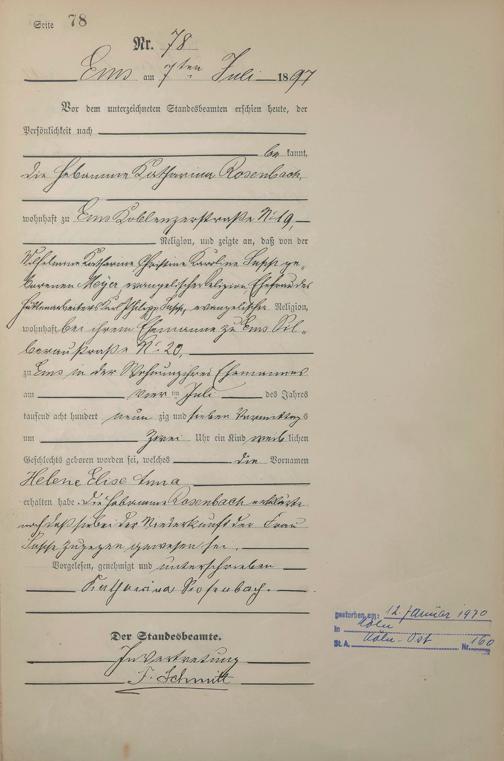 Seite 78
Nr. 78
Ems am 7ten Juli 1897
Vor dem unterzeichneten Standesbeamten erschien heute, der
Persönlichkeit nach
bekannt,
die Hebamme Katharina Rosenbach,
wohnhaft zu Ems Koblenzerstraße No 19,
Religion, und zeigte an, daß von der
Wilhelmine Katharine Christine Karoline ge-
borenen Meyer evangelischer Religion, Ehefrau des
Hüttenarbeiters Karl Philipp evangelischer Religion,
wohnhaft bei ihrem Ehemanne zu Ems Sil-
beraustraße No 20,
zu Ems in der Wohnung ihres Ehemannes
am vier ten Juli des Jahres
tausend acht hundert neun zig und sieben Vormittags
um zwei Uhr ein Kind weiblichen
Geschlechts geboren worden sei, welches die Vornamen
Helene Elise Anna
erhalten habe. Die Hebamme Rosenbach erklärte
noch daß sie bei der Niederkunft der Frau
zugegen gewesen sei.
Vorgelesen, genehmigt und unterschrieben
Katharina Rosenbach.
Der Standesbeamte.
In Vertretung
F. Schmitt
gestorben am: 12. Januar 1970
in Köln
St. A. Köln-Ost Nr. 160